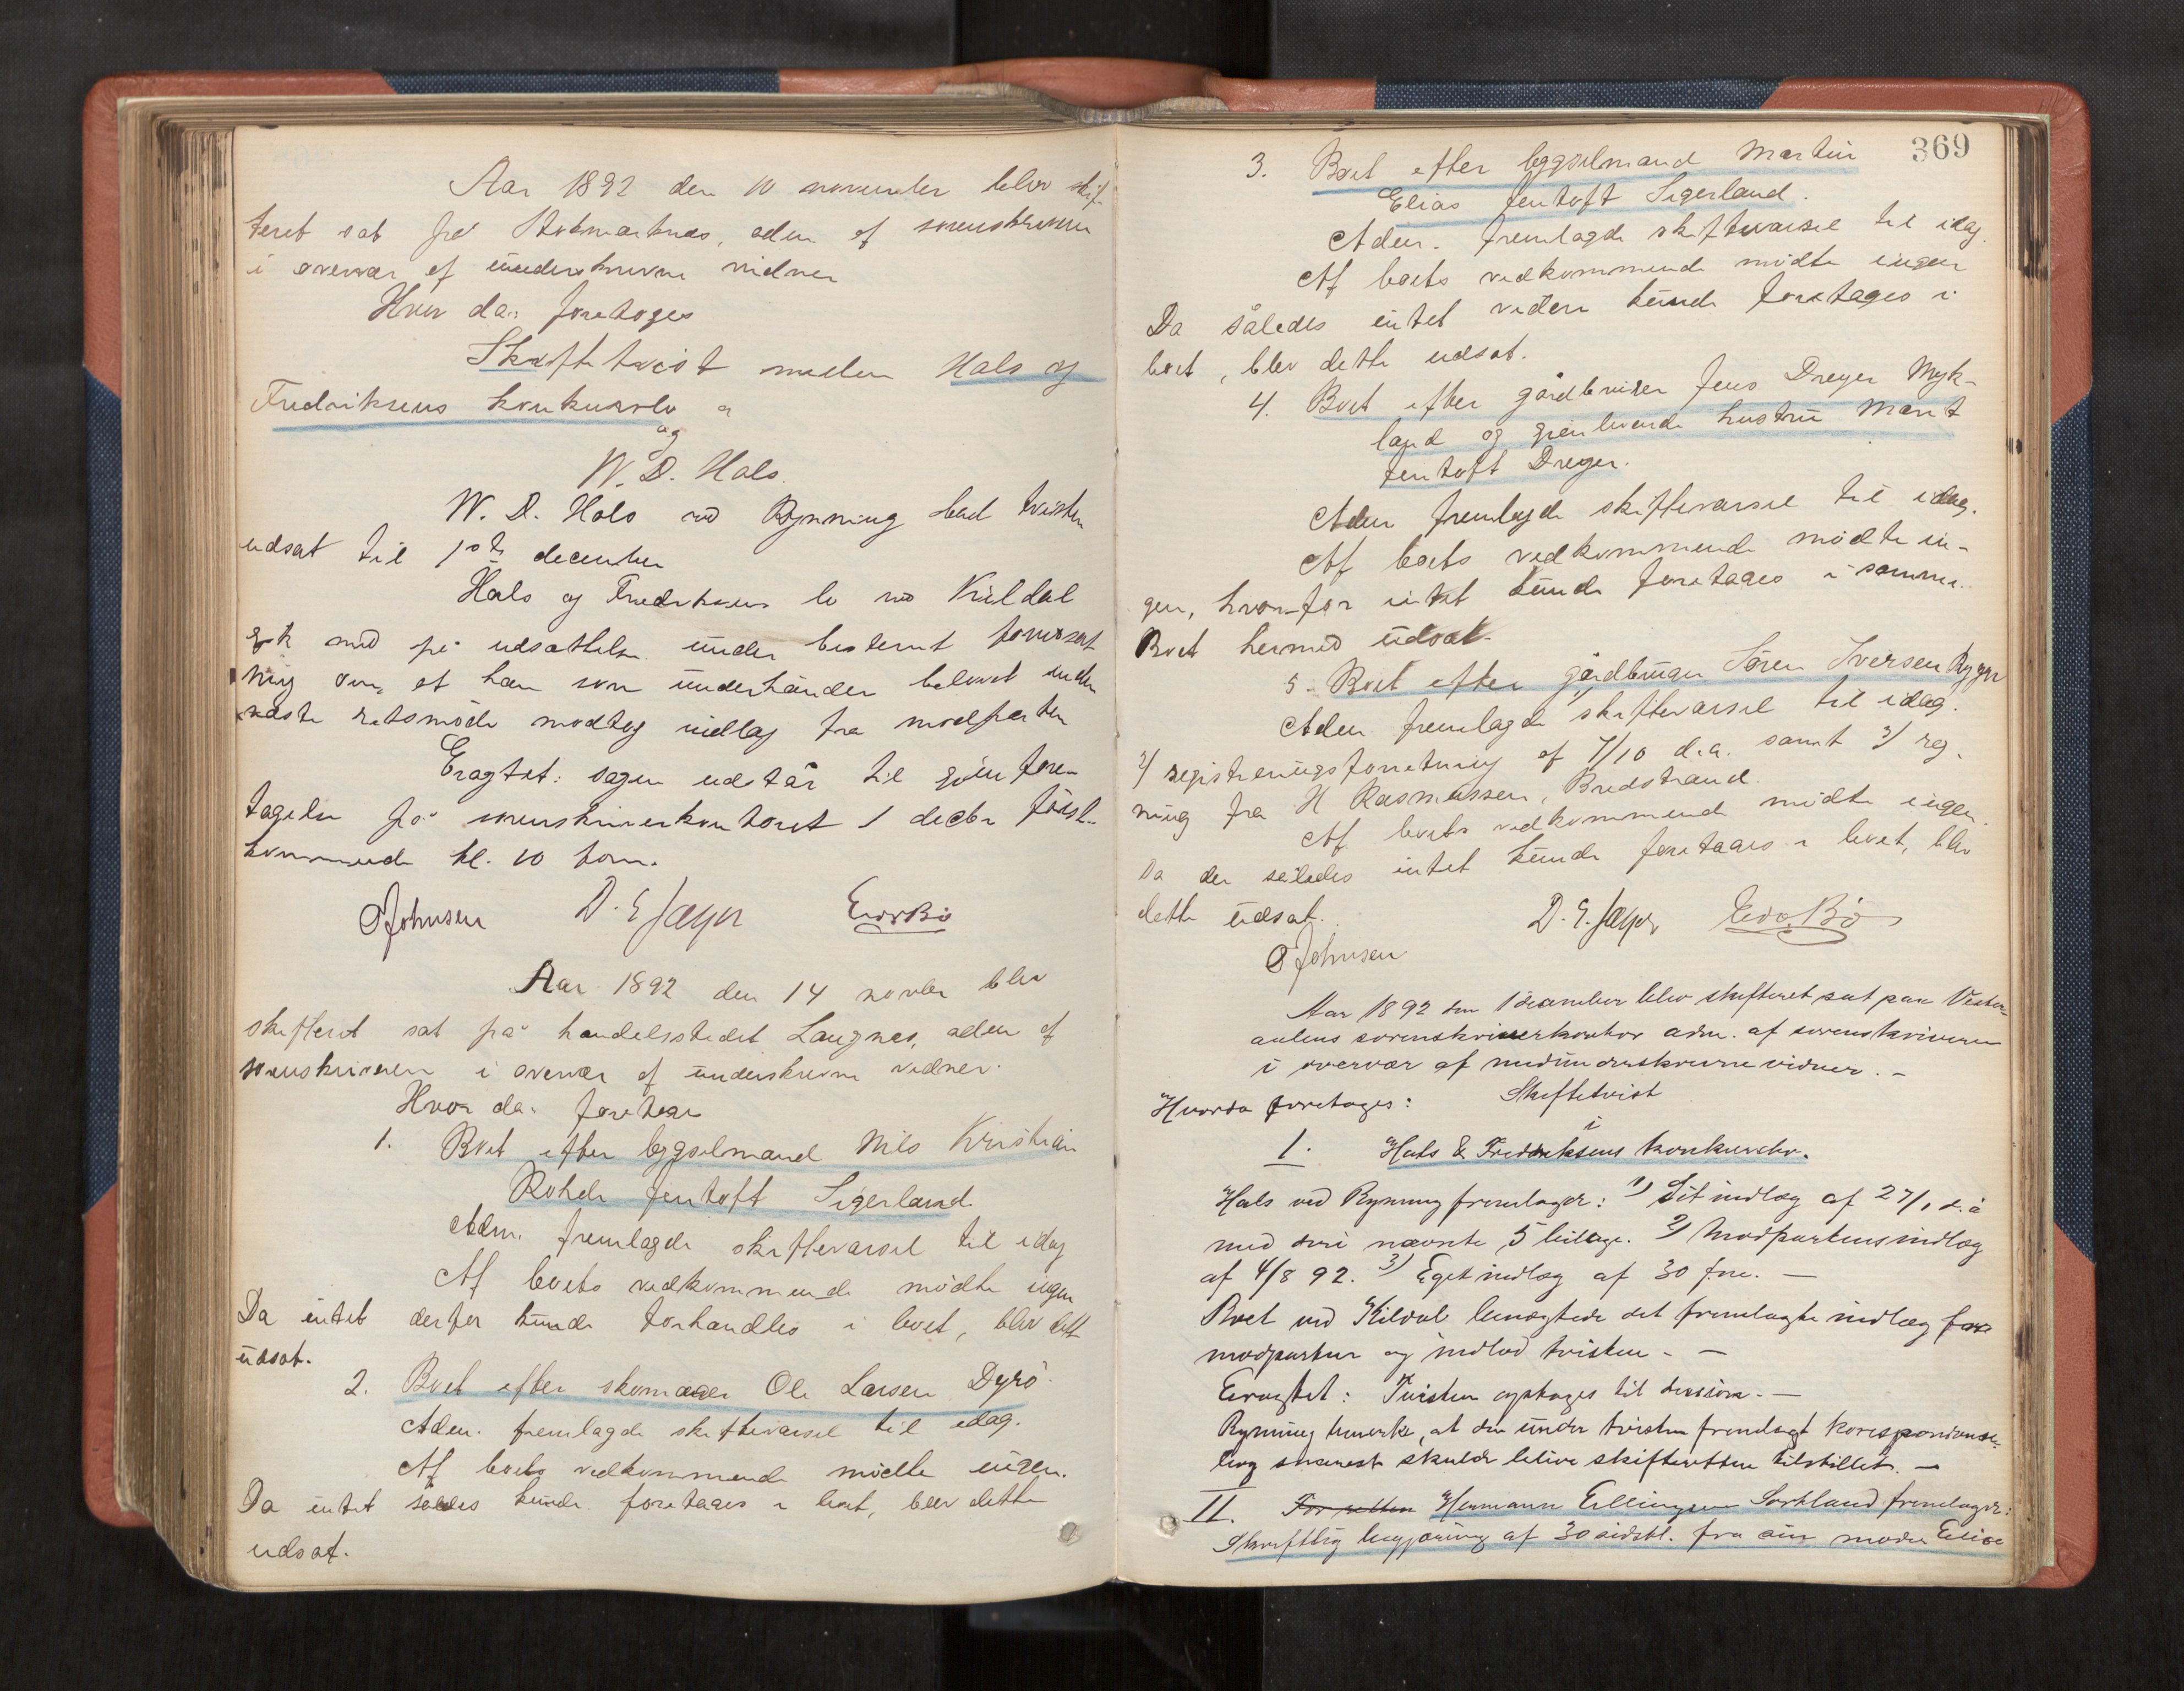 Aar 1892 den 10 november blev skif-
teret sat på Stokmarknes, adm. af sorenskriveren
i overvær af underskrevne vidner
Hvor da: foretoges
Skiftetvist mellem Hals og
Fredriksens konkursbo
og
W. D. Hals.
W. D. Hals ved Rynning bad tvisten
udsat til 1ste december
Hals og Fredriksens bo ved Kildal
gik med på udsættelse under bestemt forudsæt
ning om, at han som underhånden belovet inden
næste retsmöde modtog indlæg fra modparten
Eragtet: sagen udstår til gjenfore-
tagelse på sorenskriverkontoret 1 decbr först-
kommende kl. 10 form.
OJohnsen D. E Jæger EivrBö
Aar 1892 den 14 novbr blev
skifteret sat på handelsstedet Langnes, adm af
sorenskriveren i overvær af underskrevne vidner.
Hvor da: foretoges
1. Boet efter bygselmand Nils Kristian
Rohde Jentoft Sigerland.
Adm. fremlagde skiftevarsel til idag
Af boets vedkommende mödte ingen
Da intet derfor kunde forhandles i boet, blev dette
udsat.
2. Boet efter skomager Ole Larsen Dyrö.
Adm. fremlagde skiftevarsel til idag.
Af boets vedkommende mödte ingen.
Da intet således kunde foretages i boet, blev dette
udsat.
369
3. Boet efter bygselmand Martin
Elias Jentoft Sigerland.
Adm. fremlagde skiftevarsel til idag.
Af boets vedkommende mödte ingen
Da således intet videre kunde foretages i
boet, blev dette udsat.
4. Boet efter gårdbruger Jens Dreyer Myk-
land og gjenlevende hustru Marit
Jentoft Dreyer.
Adm fremlagde skiftevarsel til idag.
Af boets vedkommende mödte in-
gen, hvorfor intet kunde foretages i samme.
Boet hermed udsat.
5. Boet efter gårdbruger Sören Iversen Rygge
Adm. fremlagde skiftevarsel til idag.
2) registreringsforretning af 7/10 d.a. samt 3) reg-
ning fra H Rasmussen, Bredstrand.
Af boets vedkommende mödte ingen.
Da der således intet kunde foretages i boet, blev
dette udsat.
D. E. Jæger EivrBö
OJohnsen
Aar 1892 den 1 december blev skifteret sat paa Vester-
aalens sorenskriverkontor adm. af sorenskriveren
i overvær af medunderskrevne vidner. -
Hvorda foretoges: Skiftetvist
i
1. Hals & Fredriksens konkursbo.
Hals ved Rynning fremlagde: 1) Sit indlæg af 27/1 d. å
med deri nævnte 5 bilage. 2) Modpartens indlæg
af 4/8 92. 3) Eget indlæg af 30 f.m. —
Boet ved Kildal benægtede det fremlagte indlæg fra
modparten og indlod tvisten - —
Eragtet: Tvisten optages til decision. —
Rynning bemerkte, at den under tvisten fremlagt korespondance-
bog snarest skulde blive skifteretten tilstillet. —
II. For retten Hermann Ellingsen Sortland fremlagde:
Skriftlig begjæring af 30 sidstl. fra sin moder Elise